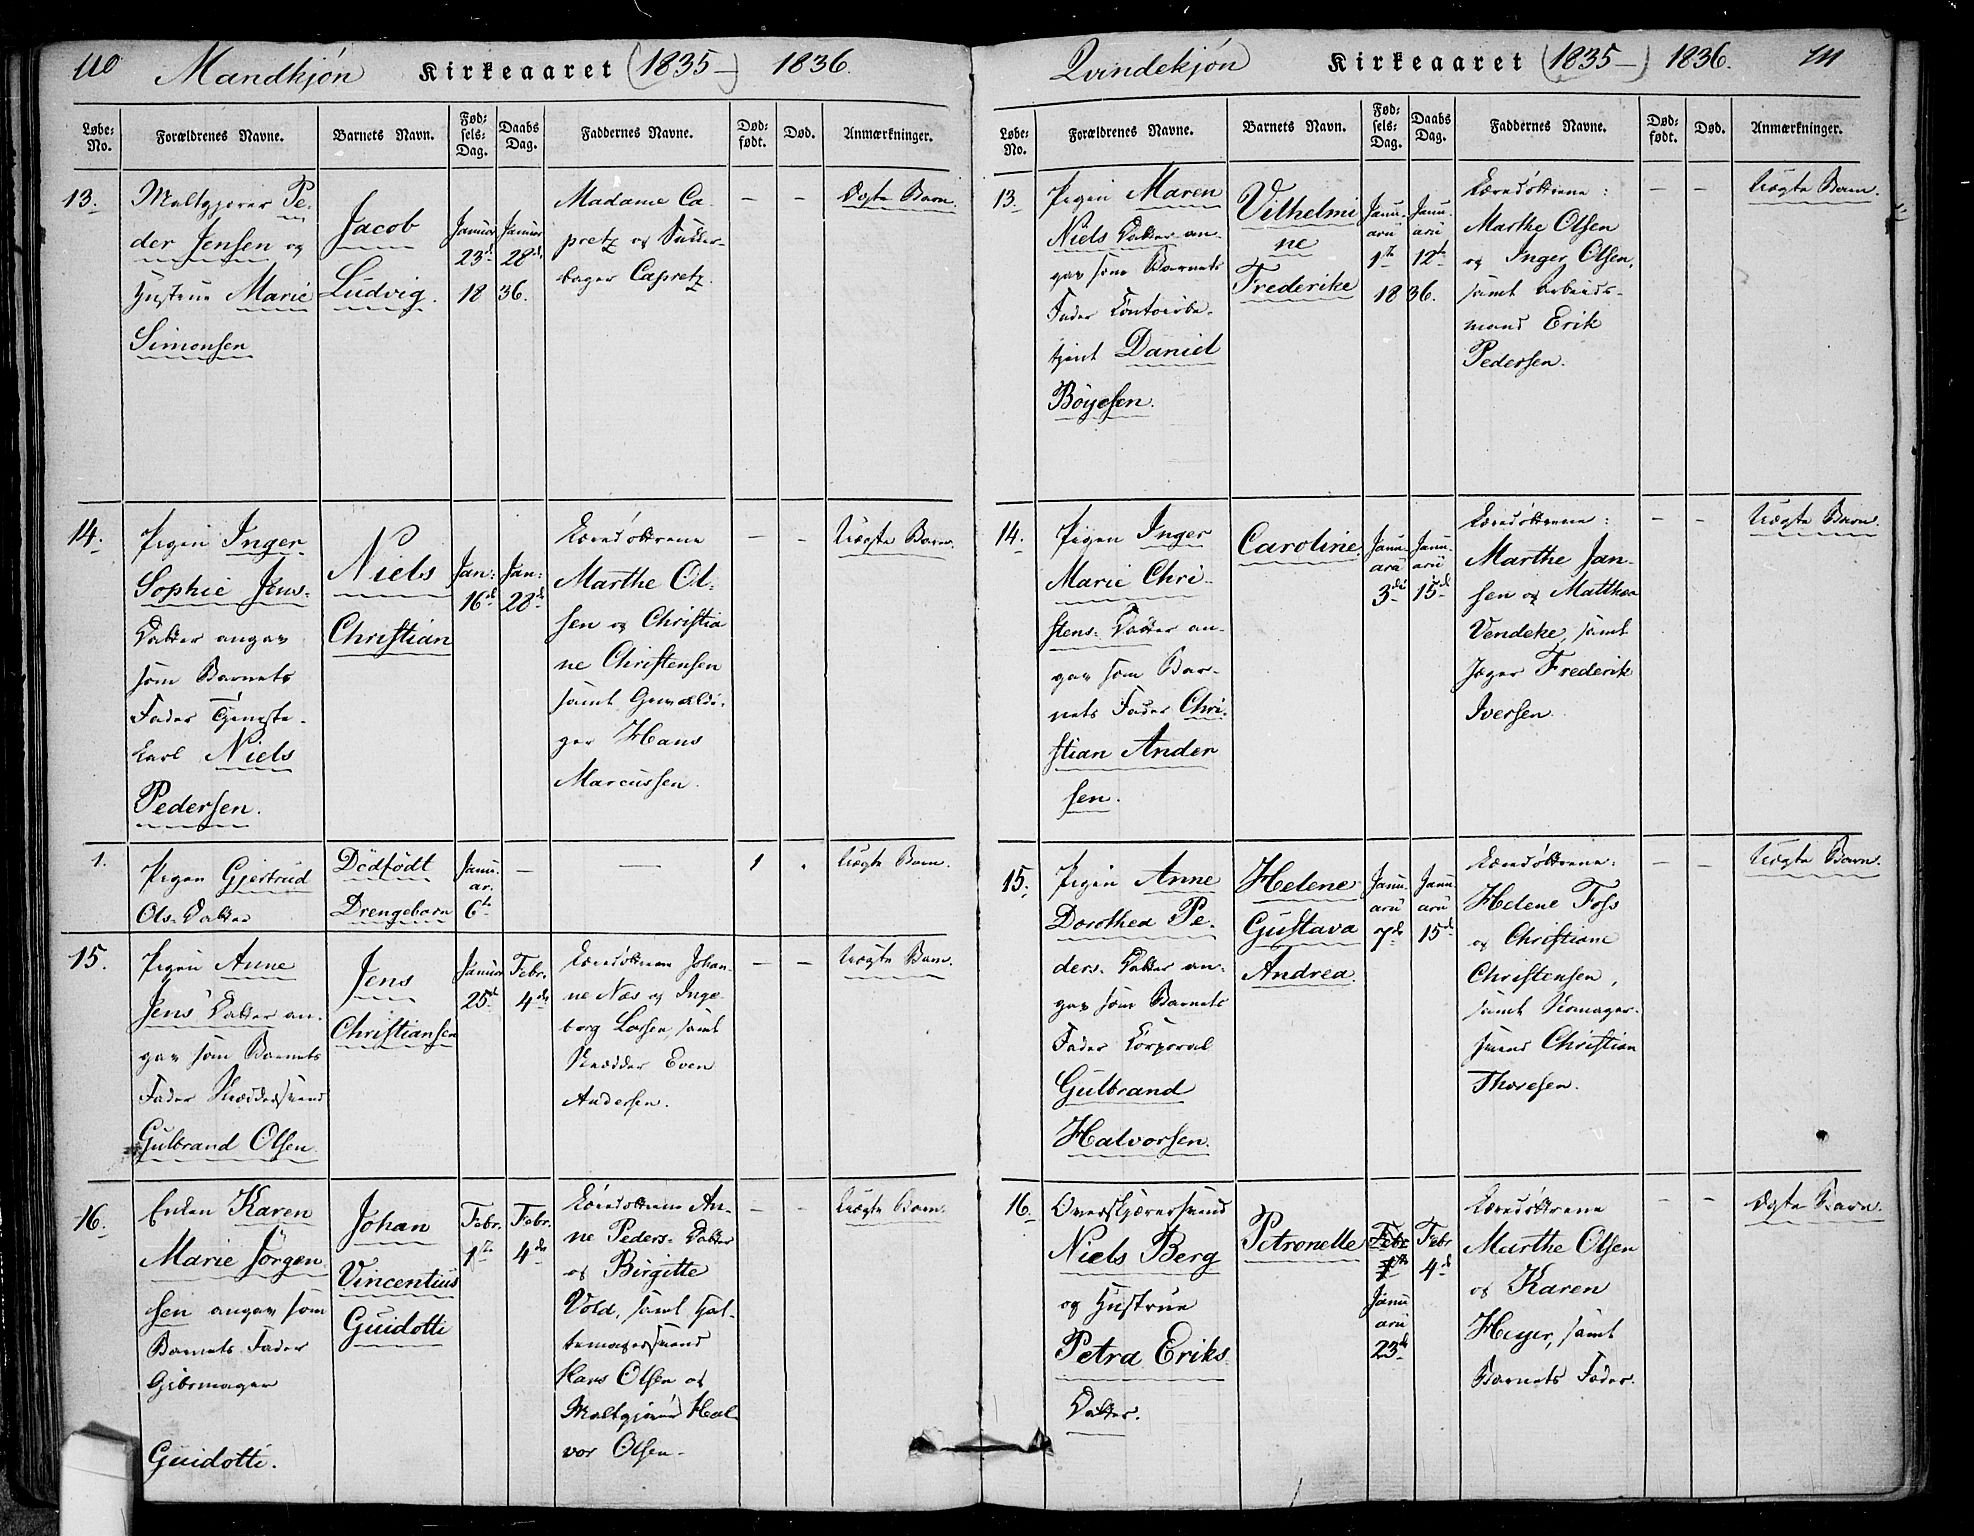 110 Mandkjøn Kirkeaaret (1835—) 1836.
Løbe-
No.
Forældrenes Navne.
Barnets Navn.
Fød-
sels-
Dag.
Daabs
Dag.
Faddernes Navne.
Død-
født.
Død.
Anmærkninger.
13.
Maltgjører Pe-
der Jensen og
Hustrue Marie
Simonsen
Jacob
Ludvig.
Januar
23d
18
Januar
28d
36.
Madame Ca-
pretz og
Capretz.
— —
Ægte Barn
14.
Pigen Inger
Sophie Jens-
Datter angav
som Barnets
Fader Tjeneste-
karl Niels
Pedersen.
Niels
Christian
Jan:
16d
Jan:
28d
Marthe Ol-
sen og Christia
ne Christensen
samt Gevaldi-
ger Hans
Marcussen.
— —
Uægte Barn.
1.
Pigen Gjertrud
Ols-Datter
Dödfödt
Drengebarn
Janu-
ar.
6te
—
—
1
Uægte Barn.
15.
Pigen Anne
Jens' Datter an-
gav som Barnets
Fader Skrædersvend
Gulbrand Olsen
Jens
Christiansen
Januar
25d
Febr.
4de
Johan-
ne Næs og Inge-
borg Larsen, samt
Skrædder Even
Andersen.
— —
Uægte Barn.
16.
Enken Karen
Marie Jörgen
sen angav som
Barnets Fader
Gibsmager
Guidotti.
Johan
Vincentius
Guidotti
Febr.
1te
Febr.
4de
An-
ne Peders-Datter
og Birgitte
Vold, samt Hat-
temagersvend
Hans Olsen og
Maltgjører Hal-
vor Olsen.
— —
Uægte Barn.
Qvindekjøn Kirkeaaret (1835—) 1836. 111
Løbe-
No.
Forældrenes Navne.
Barnets Navn.
Fød-
sels-
Dag.
Daabs
Dag.
Faddernes Navne.
Død-
født.
Død.
Anmærkninger.
13.
Pigen Maren
Niels Datter an-
gav som Barnets
Fader Contoirbe-
tjent Daniel
Böyesen.
Vilhelmi
ne
Frederike
Janu-
arii
1te
18
Janu-
arii
12te
36.
Marthe Olsen
og Inger Olsen,
samt Arbeids-
mand Erik
Pedersen.
— —
Uægte Barn.
14.
Pigen Inger
Marie Chri-
stens-Datter an-
gav som Bar-
nets Fader Chri-
stian Ander
sen.
Caroline.
Janu-
arii
3die
Janu-
arii
15d
Marthe Jan-
sen og Matthea
Vendeke, samt
Jæger Frederik
Iversen.
— —
Uægte Barn.
15.
Pigen Anne
Dorothea Pe-
ders-Datter an-
gav som Barnets
Fader Corporal
Gulbrand
Halvorsen.
Helene
Gustava
Andrea.
Janu-
arii
7de
Janu-
arii
15d
Helene Foss
og Christiane
Christensen,
samt Skomager-
svend Christian
Thoresen.
— —
Uægte Barn.
16.
Overskjærersvend
Niels Berg
og Hustrue
Petra Eriks
Datter.
Petronelle
Febr
1te
Janu-
arii
23d
Febr
4d
Marthe Olsen
og Karen
Heyer, samt
Barnets Fader.
— —
Ægte Barn.